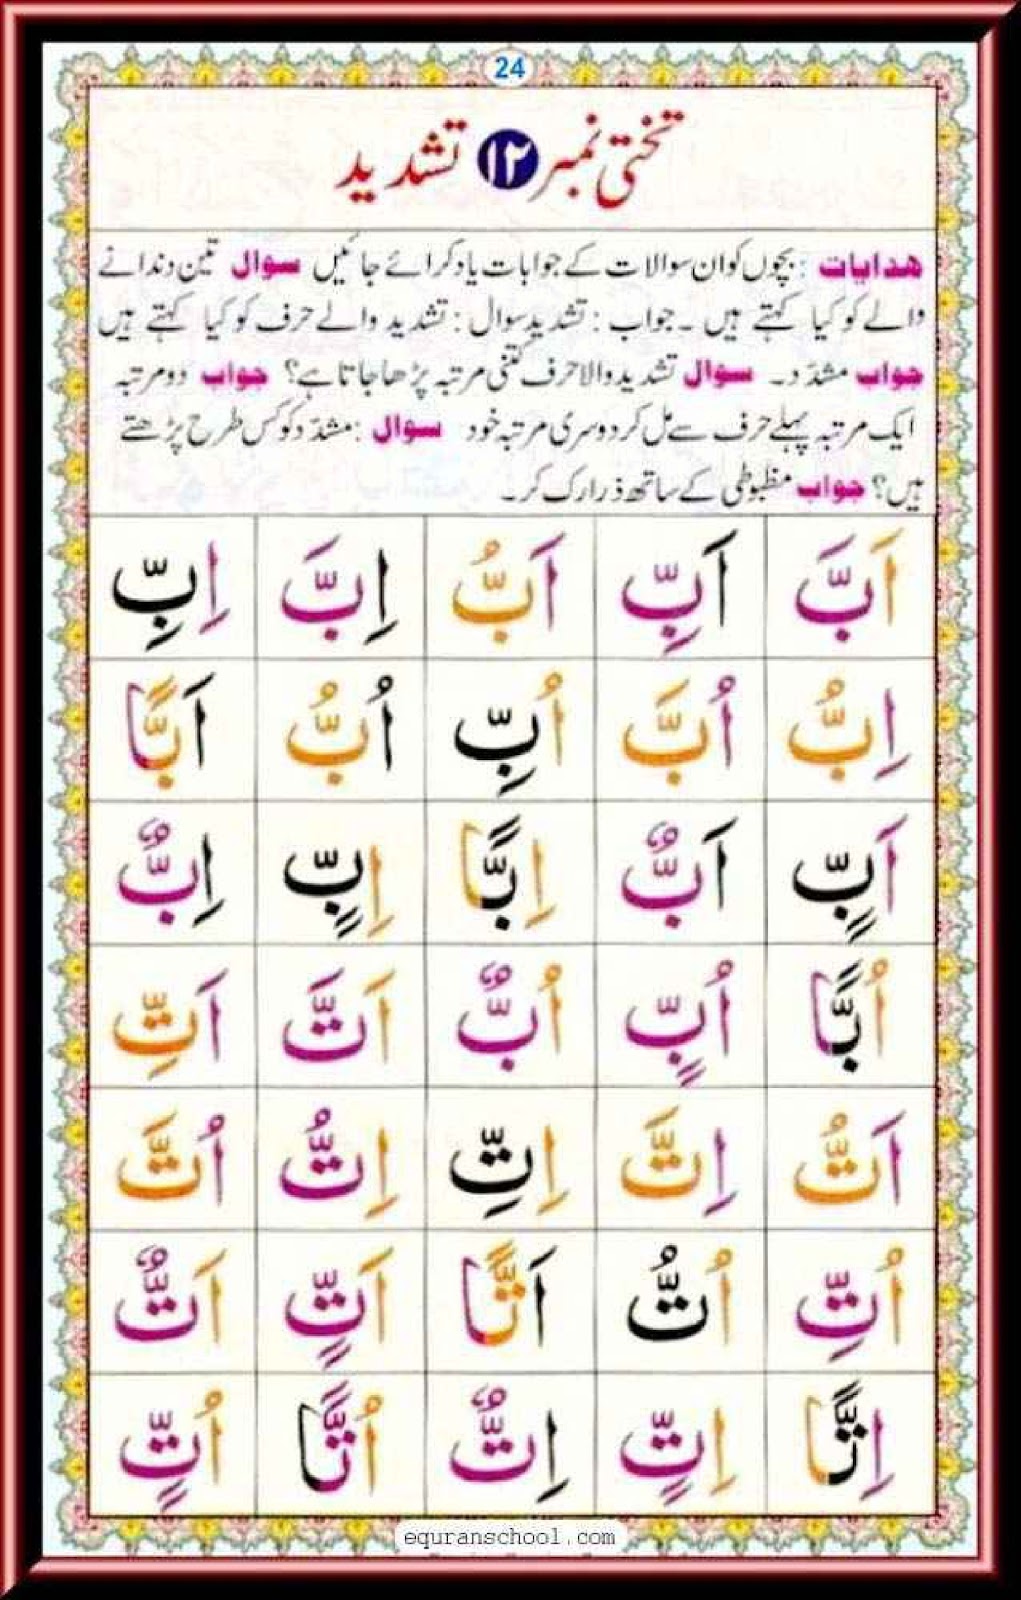 24
تختی نمبر ۱۲ تشدید
ھدایات : بچوں کو ان سوالات کے جوابات یاد کرائے جائیں سوال تین دندانے
والے کو کیا کہتے ہیں ۔ جواب : تشدید سوال : تشدید والے حرف کو کیا کہتے ہیں
جواب مشدّد ۔ سوال تشدید والا حرف کتنی مرتبہ پڑھا جاتا ہے؟ جواب دو مرتبہ
ایک مرتبہ پہلے حرف سے مل کر دوسری مرتبہ خود سوال : مشدّد کو کس طرح پڑھتے
ہیں؟ جواب مظبوطی کے ساتھ ذرا رک کر ۔
اَبَّ اَبِّ اَبُّ اِبَّ اِبِّ
اِبُّ اُبَّ اُبِّ اُبُّ اَبًّا
اَبٍّ اَبٌّ اِبًّا اِبٍّ اِبٌّ
اُبًّا اُبٍّ اُبٌّ اَتَّ اَتِّ
اَتُّ اِتَّ اِتِّ اِتُّ اُتَّ
اُتِّ اُتُّ اَتًّا اَتٍّ اَتٌّ
اِتًّا اِتٍّ اِتٌّ اُتًّا اُتٍّ
equranschool.com